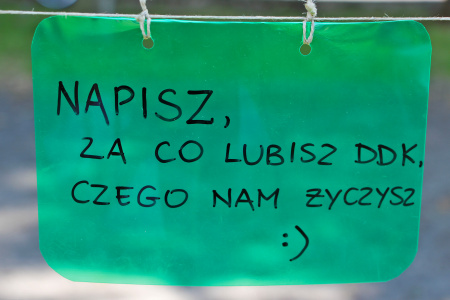 NAPISZ,
ZA CO LUBISZ DDK,
CZEGO NAM ŻYCZYSZ
:)